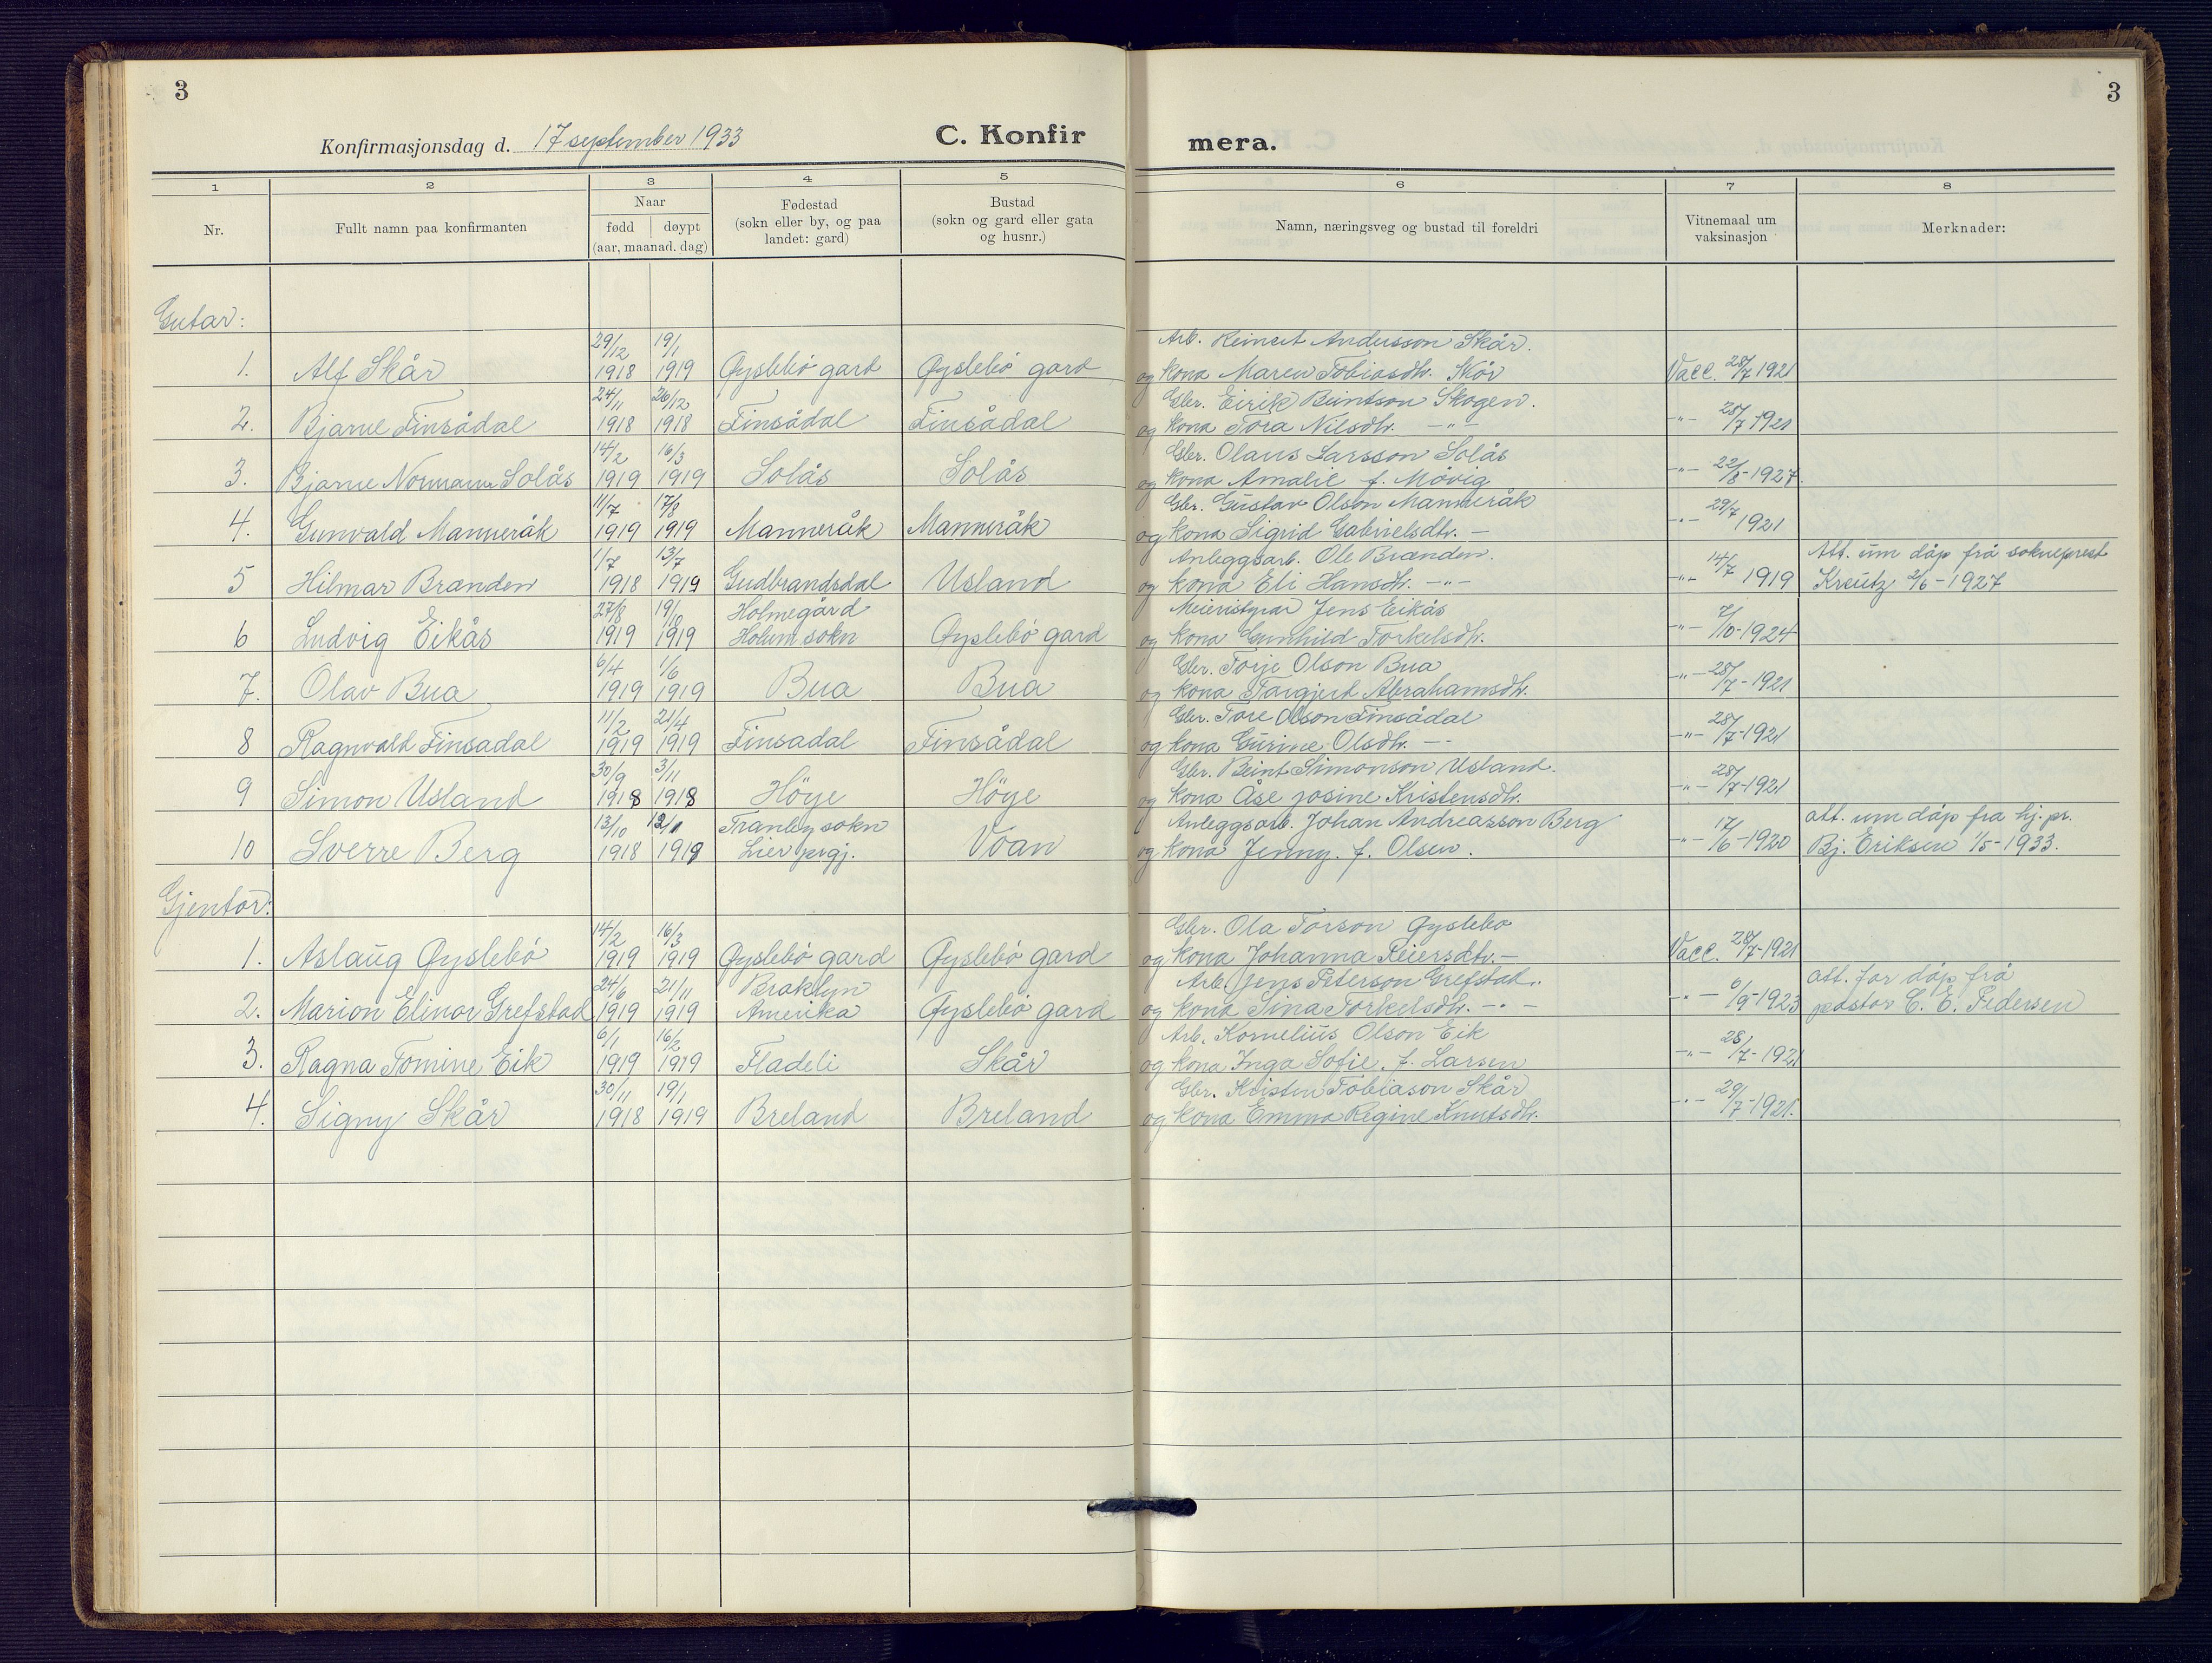 3
3
Konfirmasjonsdag d. 17 september 1933
C. Konfir
mera.
1 2 3 4 5 6 7 8
Nr.
Fullt namn paa konfirmanten
Naar
fødd døypt
(aar, maanad. dag)
Fødestad
(sokn eller by, og paa
landet: gard)
Bustad
(sokn og gard eller gata
og husnr.)
Namn, næringsveg og bustad til foreldri
Vitnemaal um
vaksinasjon
Merknader:
Gutar:
29/12 19/1 Arb. Reinert Andersson Skår.
1. Alf Skår 1918 1919 Øyslebö gard Øyslebö gard og kona Maren Tobiasdtr. Skår Vacc. 28/7 1921
24/11 26/12 Gbr. Eirik Beintson Skogen.
2. Bjarne Finsådal 1918 1918 Finsådal Finsådal og kona Tora Nilsdtr. -"- -"- 28/7-1921
14/2 16/3 Gbr. Olaus Larsson Solås
3. Bjarne Normann Solås 1919 1919 Solås Solås og kona Amalie f. Mövig -"- 22/8-1927.
11/7 17/8 Gbr. Gustav Olson Manneråk
4. Gunvald Manneråk 1919 1919 Manneråk Manneråk og kona Sigrid Gabrielsdtr. - -"- 29/7 1921
1/7 13/7 Anleggsarb. Ole Brænden. Att. um dåp frå sokneprest
5 Hilmar Brænden 1918 1919 Gudbrandsdal Usland og kona Eli Hansdtr. -"- -"- 14/7 1919 Kreutz 2/6-1927
27/8 19/10 Holmegård Meieristyrar Jens Eikås
6 Ludvig Eikås 1919 1919 Holum sokn Øyslebö gard og kona Gunhild Torkelsdtr. -"- 7/10-1924
6/4 1/6 Gbr. Torje Olson Bua
7. Olav Bua 1919 1919 Bua Bua og kona Torgjerd Abrahamsdtr. -"- 28/7-1921
11/2 21/4 Gbr. Tore Olson Finsådal
8 Ragnvald Finsadal 1919 1919 Finsadal Finsådal og kona Gurine Olsdtr. -"- -"- 28/7-1921
30/9 3/11 Gbr. Beint Simonson Usland.
9 Simon Usland 1918 1918 Höye Höye og kona Åse Josine Kristensdtr. -"- 28/7-1921
13/10 Tranby sokn Anleggsarb. Johan Andreasson Berg att. um dåp fra hj. pr.
10 Sverre Berg 1918 1919 Lier prgj. Voan og kona Jenny. f. Olsen. -"- 17/6-1920 Bj. Eriksen 1/5-1933.
Gjentor:
14/2 16/3 Gbr. Ola Torson Øyslebö
1. Aslaug Øyslebö 1919 1919 Øyslebö gard Øyslebö gard og kona Johanna Reiersdtr. - Vacc. 28/7-1921
24/6 21/11 Broklyn Arb. Jens Peterson Grefstad. att. for dåp frå
2. Marion Elinor Grefstad 1919 1919 Amerika Øyslebö gard og kona Sina Torkelsdtr. -"- -"- 6/9-1923 pastor C. E. Pedersen
6/1 16/2 Arb. Kornelius Olson Eik
3. Ragna Tomine Eik 1919 1919 Fladeli Skår og kona Inga Sofie. f. Larsen -"- 28/7-1921
30/11 19/1 Gbr. Kristen Tobiason Skår
4. Signy Skår 1918 1919 Breland Breland og kona Emma Regine Knutsdtr. -"- 29/7-1921.